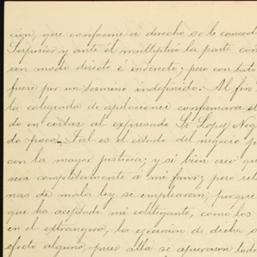 cion, que conforme a derecho se le conced
Superior y ante él multiplicó la parte con
un modo directo é indirecto; pero con todo
fuere por un termino indefinido. Al fin
la colegiada de apelaciones confirmara el
do en costas al expresado Sr Lopez Neg
do poco. Tal es el estado del negocio p
con la mayor justicia; y si bien creo qu
sera completamente a mi favor; pero
nas de mala ley se emplearon, porque
que ha aceptado mi colitigante, como los
en el extrangero, la ejecucion de dicha s
efecto alguno, pues alla se apuraron todo